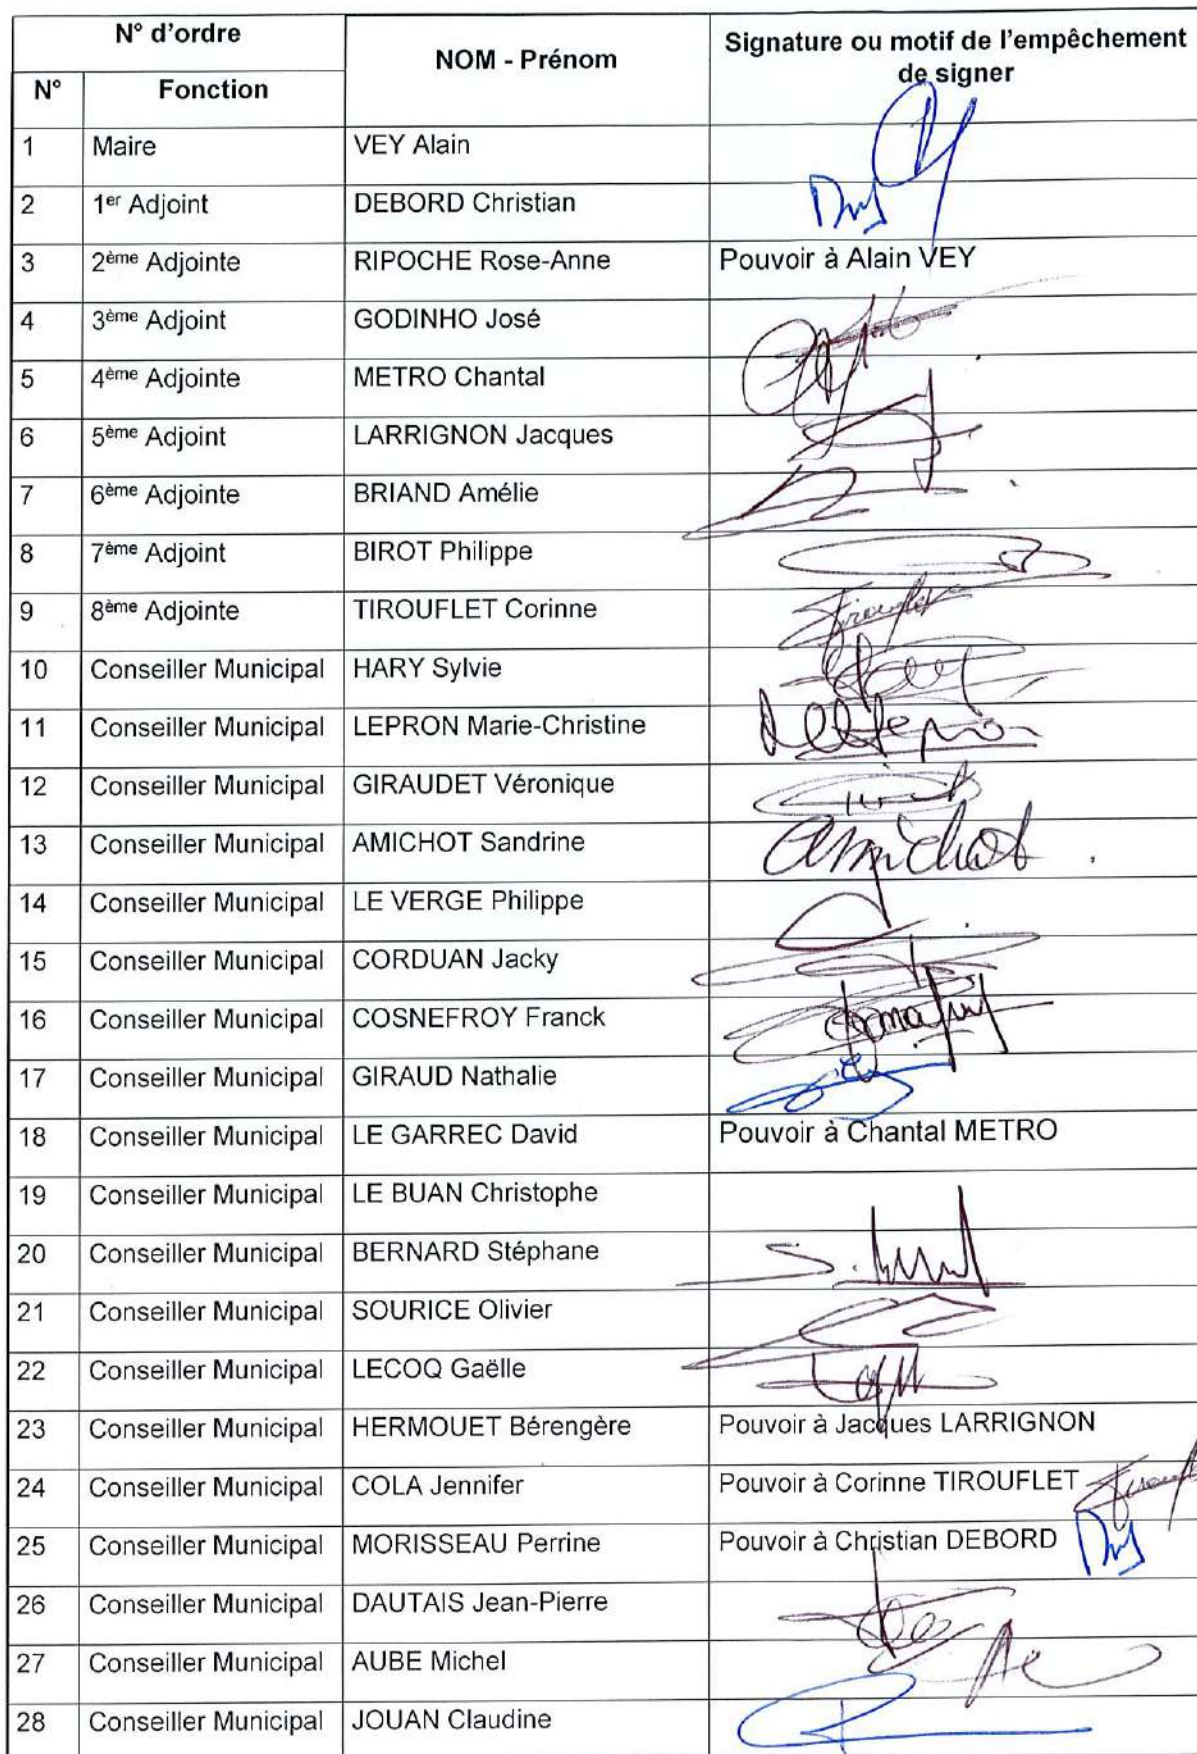 N° d'ordre
NOM - Prénom
Signature ou motif de l'empêchement
de signer
N° Fonction
1 Maire VEY Alain
2 1er Adjoint DEBORD Christian
3 2ème Adjointe RIPOCHE Rose-Anne Pouvoir à Alain VEY
4 3ème Adjoint GODINHO José
5 4ème Adjointe METRO Chantal
6 5ème Adjoint LARRIGNON Jacques
7 6ème Adjointe BRIAND Amélie
8 7ème Adjoint BIROT Philippe
9 8ème Adjointe TIROUFLET Corinne Tirouflet
10 Conseiller Municipal HARY Sylvie
11 Conseiller Municipal LEPRON Marie-Christine
12 Conseiller Municipal GIRAUDET Véronique
13 Conseiller Municipal AMICHOT Sandrine Amichot
14 Conseiller Municipal LE VERGE Philippe
15 Conseiller Municipal CORDUAN Jacky
16 Conseiller Municipal COSNEFROY Franck
17 Conseiller Municipal GIRAUD Nathalie
18 Conseiller Municipal LE GARREC David Pouvoir à Chantal METRO
19 Conseiller Municipal LE BUAN Christophe
20 Conseiller Municipal BERNARD Stéphane
21 Conseiller Municipal SOURICE Olivier
22 Conseiller Municipal LECOQ Gaëlle
23 Conseiller Municipal HERMOUET Bérengère Pouvoir à Jacques LARRIGNON
24 Conseiller Municipal COLA Jennifer Pouvoir à Corinne TIROUFLET
25 Conseiller Municipal MORISSEAU Perrine Pouvoir à Christian DEBORD
26 Conseiller Municipal DAUTAIS Jean-Pierre
27 Conseiller Municipal AUBE Michel
28 Conseiller Municipal JOUAN Claudine